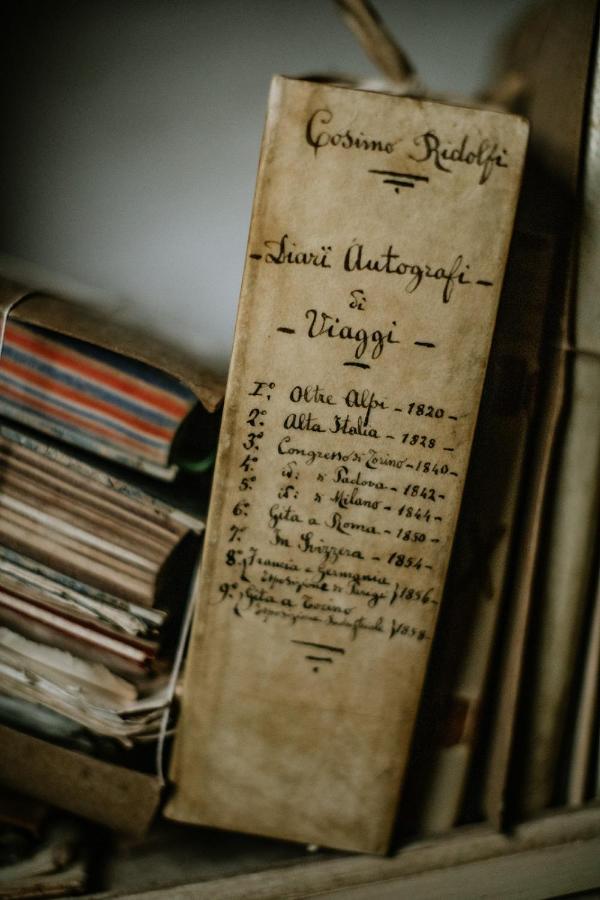 Cosimo Ridolfi
- Diarï Autografi -
di
- Viaggi -
1.° Oltre Alpi - 1820 -
2.° Alta Italia - 1828 -
3.° Congresso di Torino - 1840 -
4.° id: di Padova - 1842 -
5.° id: di Milano - 1844 -
6.° Gita a Roma - 1850 -
7.° In Svizzera - 1854 -
8.° { Francia e Germania
Esposizione di Parigi } 1856 -
9.° { Gita a Torino
Esposizione Industriale } 1858 -